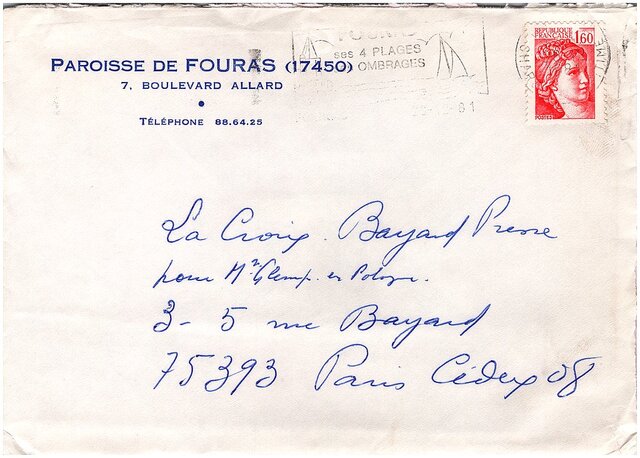 PAROISSE DE FOURAS (17450)
7, BOULEVARD ALLARD
TÉLÉPHONE 88.64.25
FOURAS
ses 4 PLAGES
OMBRAGES
81
REPUBLIQUE
FRANÇAISE 1,60
La Croix. Bayard Presse
pour Mgr Glemp. en Pologne.
3- 5 rue Bayard
75393 Paris Cédex 08